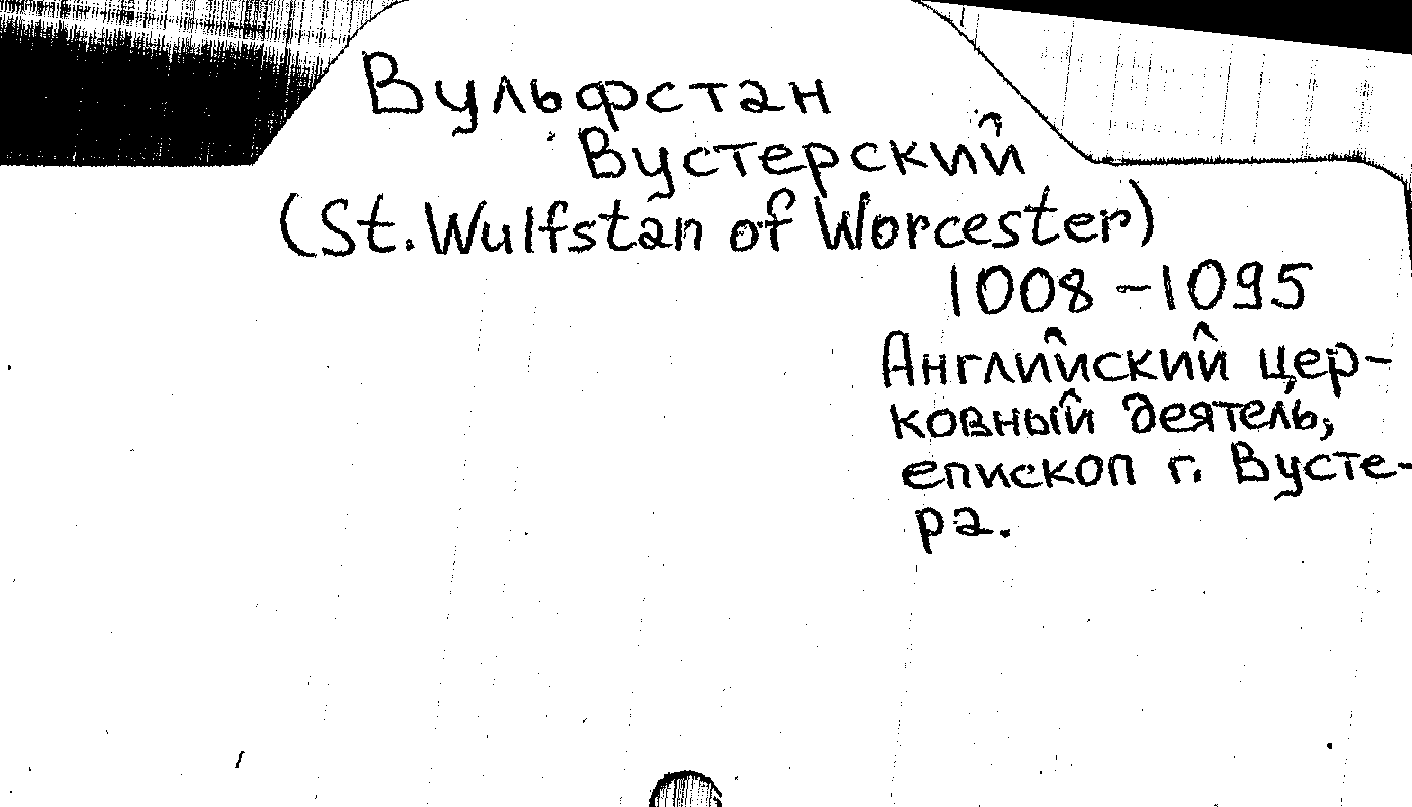 Вульфстан
Вустерский
(St. Wulfstan of Worcester)
1008-1095
Английский цер-
ковный деятель,
епископ г. Вусте-
ра.